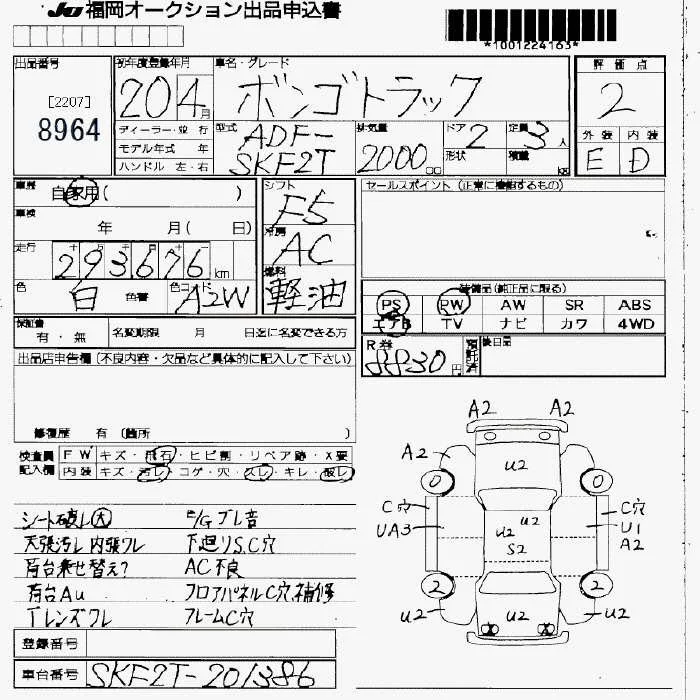 JU 福岡オークション出品申込書
*1001224163*
出品番号
[2207]
8964
初年度登録年月
20 4月
車名・グレード
ボンゴトラック
評価点
2
ディーラー・並行
モデル年式 年
ハンドル 左・右
型式
ADF-
SKF2T
排気量
2000cc
ドア 2
形状
定員 3人
積載 kg
外装 内装
E D
車歴 自家用( )
車検 年 月( 日)
走行
293676km
色 白 色替 色コード A2W
シフト
F5
冷房
AC
燃料
軽油
セールスポイント(正常に機能するもの)
装備品(純正品に限る)
PS PW AW SR ABS
エアB TV ナビ カワ 4WD
保証書 有・無
名変期限 月 日迄に名変できる方
R券 8830円
預託済
後日品
出品店申告欄(不良内容・欠品など具体的に記入して下さい)
修復歴 有(箇所 )
検査員 FW キズ・飛石・ヒビ割・リペア跡・X要
記入欄 内装 キズ・汚レ・コゲ・穴・スレ・キレ・破レ
シート破レ大
E/Gブレ音
天張汚レ 内張ワレ
下廻りS,C穴
荷台乗せ替え?
AC不良
荷台Au
フロアパネルC穴,補修
Tレンズワレ
フレームC穴
A2 A2
A2
U2
0 0
C穴
UA3
U2
U2
S2
C穴
U1
A2
2 2
U2
U2
U2
登録番号
車台番号 SKF2T-201386